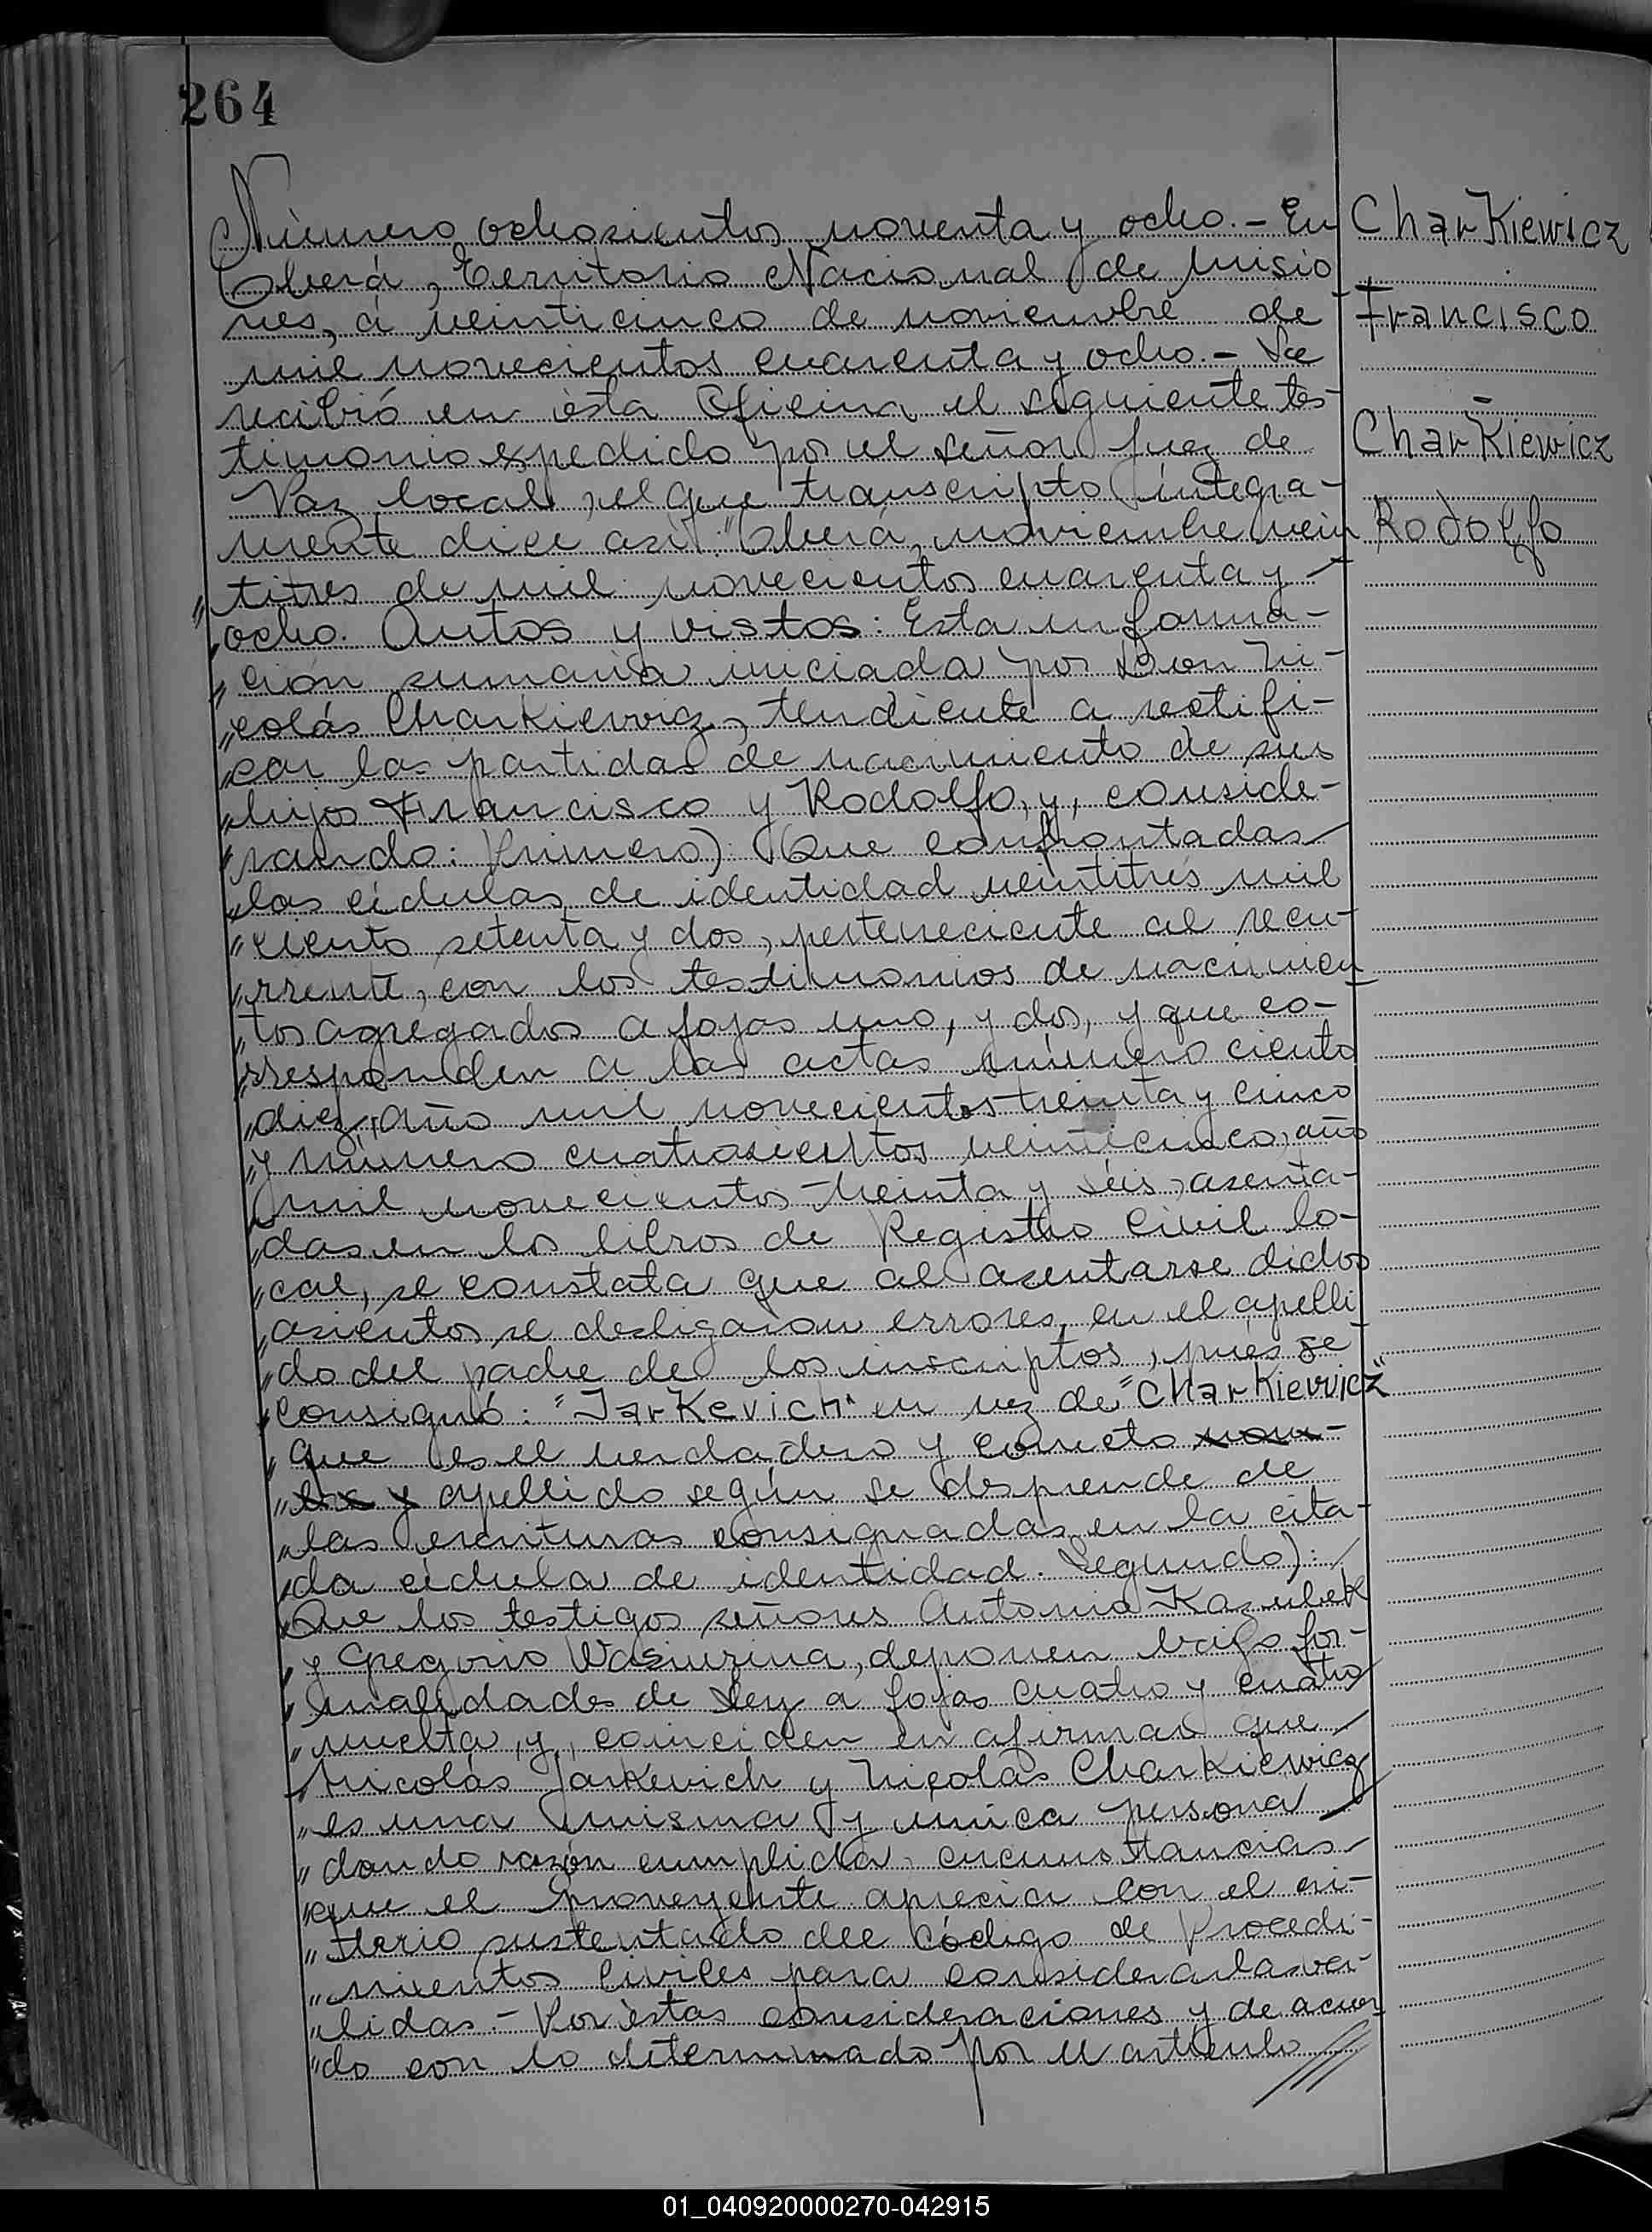 264
Número ochosientos noventa y ocho. - En
Oberá, Territorio Nacional de Misio
nes, á veinticinco de noviembre de
mil novecientos cuarenta y ocho. - Se
recibió en ésta Oficina el siguiente tes-
timonio expedido por el señor Juez de
Paz local, el que transcripto íntegra-
mente dice así "Oberá, noviembre vein
"titres de mil novecientos cuarenta y -
"ocho. Autos y vistos: Esta informa-
"ción sumaria iniciada por Don Ni-
"colás Charkiewicz, tendiente a rectifi-
"car las partidas de nacimiento de sus
"hijos Francisco y Rodolfo, y, conside-
"rando: Primero) Que confrontadas
"las cédulas de identidad veintitrés mil
"ciento setenta y dos, perteneciente al recu-
"rrente, con los testimonios de nacimien
"tos agregados a fojas uno, y dos, y que co-
"rresponden a las actas número ciento
"diez, año mil novecientos treinta y cinco
"y número cuatrosientos veinticinco, año
"mil novecientos treinta y séis, asenta-
"das en los libros de Registro Civil lo-
"cal, se constata que al asentarse dichos
"asientos se desligaron errores, en el apelli
"do del padre de los inscriptos, pués se
"consignó: "Jarkevich" en vez de "Charkiewicz"
"que es el verdadero y correcto nom-
"bre y apellido según se desprende de
"las escrituras consignadas en la cita-
"da cédula de identidad. Segundo):
"Que los testigos señores Antonio Kazubek
"y Gregorio Wasiuzina, deponen bajo for-
"malidades de Ley a fojas cuatro y cuatro
"vuelta, y, coinciden en afirmar que
"Nicolás Jarkevich y Nicolás Charkiewicz
"es una misma y única persona
"dando razón cumplida, circunstancias
"que el proveyente aprecia con el cri-
"terio sustentado del Código de Procedi-
"mientos Civiles para considerarlas vá-
"lidas. - Por éstas consideraciones y de acuer
"do con lo determinado por el artículo ///
CharKiewicz
Francisco
-
CharKiewicz
Rodolfo
01_040920000270-042915